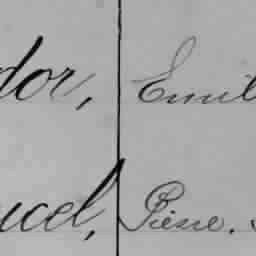 dor, Emil
ucel, Piere.